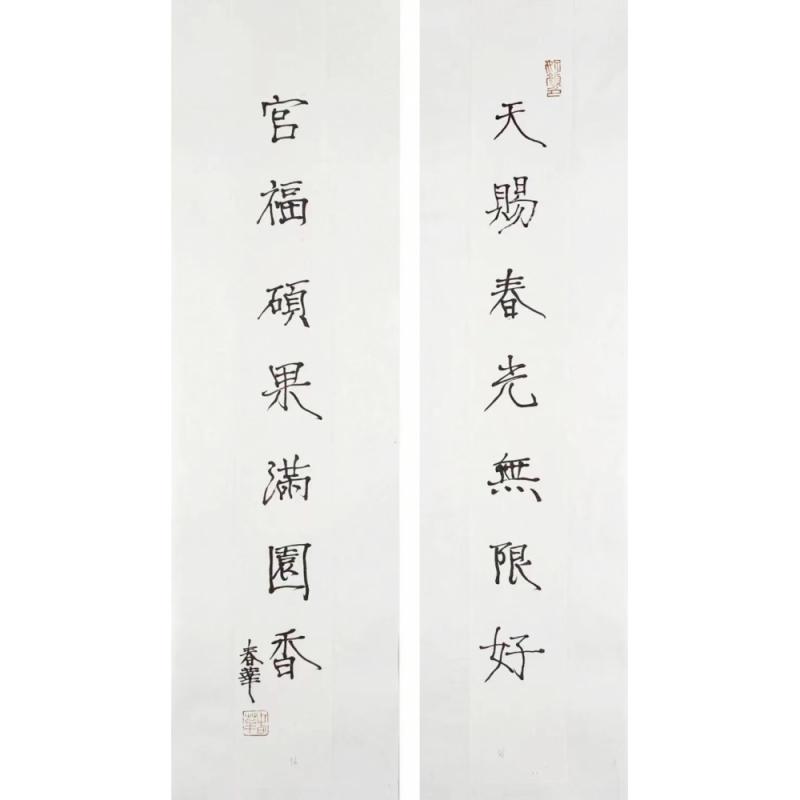 天賜春光無限好
官福碩果滿園香
春華